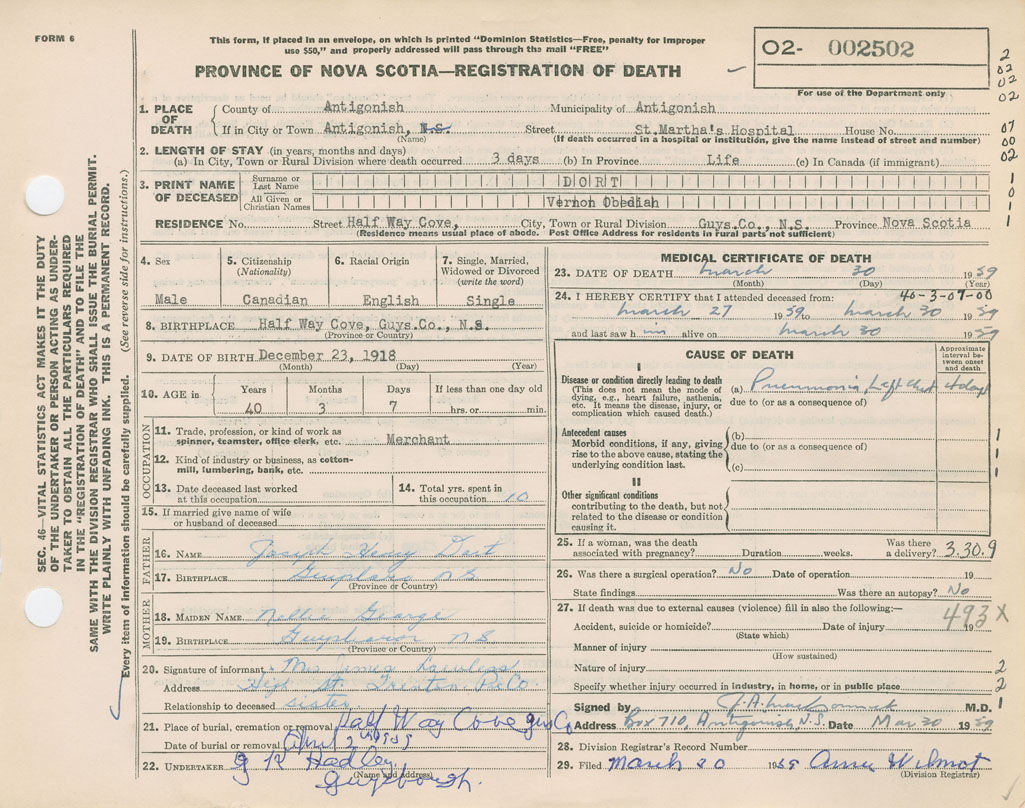 FORM 6
This form, if placed in an envelope, on which is printed "Dominion Statistics—Free, penalty for improper
use $50," and properly addressed will pass through the mail "FREE"
O2- 002502
For use of the Department only
PROVINCE OF NOVA SCOTIA—REGISTRATION OF DEATH
2
02
02
02
07
00
02
1
0
1
1
SEC. 46—VITAL STATISTICS ACT MAKES IT THE DUTY
OF THE UNDERTAKER OR PERSON ACTING AS UNDER-
TAKER TO OBTAIN ALL THE PARTICULARS REQUIRED
IN THE "REGISTRATION OF DEATH" AND TO FILE THE
SAME WITH THE DIVISION REGISTRAR WHO SHALL ISSUE THE BURIAL PERMIT.
WRITE PLAINLY WITH UNFADING INK. THIS IS A PERMANENT RECORD.
Every item of information should be carefully supplied. (See reverse side for instructions.)
1. PLACE OF DEATH
County of Antigonish Municipality of Antigonish
If in City or Town Antigonish, N.S. Street St.Martha's Hospital House No.
(Name) (If death occurred in a hospital or institution, give the name instead of street and number)
2. LENGTH OF STAY (in years, months and days)
(a) In City, Town or Rural Division where death occurred 3 days (b) In Province Life (c) In Canada (if immigrant)
3. PRINT NAME OF DECEASED
Surname or Last Name DORT
All Given or Christian Names Vernon Obediah
RESIDENCE No. Street Half Way Cove, City, Town or Rural Division Guys.Co., N.S. Province Nova Scotia
(Residence means usual place of abode. Post Office Address for residents in rural parts not sufficient)
4. Sex
Male
5. Citizenship
(Nationality)
Canadian
6. Racial Origin
English
7. Single, Married,
Widowed or Divorced
(write the word)
Single
8. BIRTHPLACE Half Way Cove, Guys.Co., N.S.
(Province or Country)
9. DATE OF BIRTH December 23, 1918
(Month) (Day) (Year)
10. AGE in
Years 40
Months 3
Days 7
If less than one day old
hrs. or min.
OCCUPATION
11. Trade, profession, or kind of work as
spinner, teamster, office clerk, etc. Merchant
12. Kind of industry or business, as cotton-
mill, lumbering, bank, etc.
13. Date deceased last worked
at this occupation
14. Total yrs. spent in
this occupation 10
15. If married give name of wife
or husband of deceased
FATHER
16. NAME Joseph Henry Dort
17. BIRTHPLACE NS
(Province or Country)
MOTHER
18. MAIDEN NAME Nellie George
19. BIRTHPLACE NS
(Province or Country)
20. Signature of informant Mrs
Address High St. Trenton
Relationship to deceased sister
21. Place of burial, cremation or removal Half Way Cove guys Co
Date of burial or removal April 2nd 1959
22. UNDERTAKER G R Hadley
(Name and address)
Guysborough.
MEDICAL CERTIFICATE OF DEATH
23. DATE OF DEATH March 30 1959
(Month) (Day) (Year)
24. I HEREBY CERTIFY that I attended deceased from: 40-3-07-00
March 27 1959 to March 30 1959
and last saw him alive on March 30 1959
CAUSE OF DEATH
Approximate
interval be-
tween onset
and death
I
Disease or condition directly leading to death
(This does not mean the mode of
dying, e.g., heart failure, asthenia,
etc. It means the disease, injury, or
complication which caused death.)
(a) Pneumonia, Left Chest 4 days
due to (or as a consequence of)
Antecedent causes
Morbid conditions, if any, giving
rise to the above cause, stating the
underlying condition last.
(b)
due to (or as a consequence of)
(c)
1
1
1
II
Other significant conditions
contributing to the death, but not
related to the disease or condition
causing it.
25. If a woman, was the death
associated with pregnancy? Duration weeks. Was there
a delivery? 3.30.9
26. Was there a surgical operation? No Date of operation 19
State findings Was there an autopsy? No
27. If death was due to external causes (violence) fill in also the following:—
493X
Accident, suicide or homicide? Date of injury 19
(State which)
Manner of injury
(How sustained)
Nature of injury
2
Specify whether injury occurred in industry, in home, or in public place
2
Signed by M.D.
1
Address Box 710, Antigonish, N.S. Date Mar 30 1959
28. Division Registrar's Record Number
29. Filed March 30 1959 Wilmot
(Division Registrar)